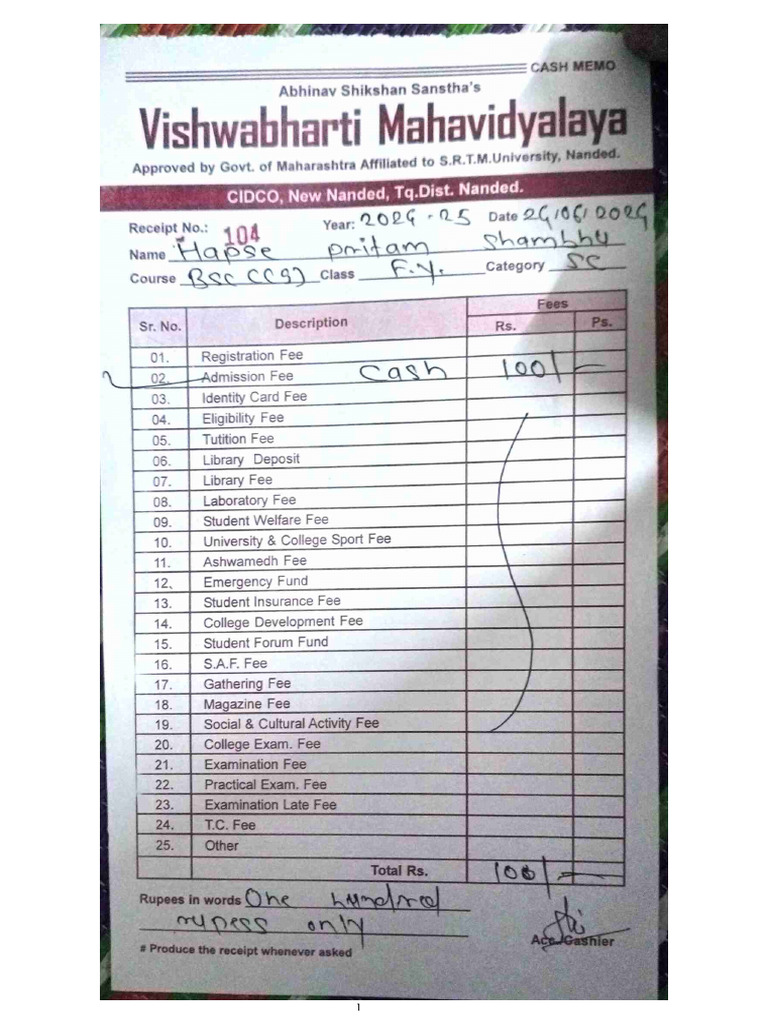 CASH MEMO
Abhinav Shikshan Sanstha's
Vishwabharti Mahavidyalaya
Approved by Govt. of Maharashtra Affiliated to S.R.T.M.University, Nanded.
CIDCO, New Nanded, Tq.Dist. Nanded.
Receipt No.: 104 Year: 2024-25 Date 24/06/2024
Name Hapse pritam Shambhu
Course BSC (CS) Class F.Y. Category SC
Sr. No. Description Fees
Rs. Ps.
01. Registration Fee
02. Admission Fee Cash 100/-
03. Identity Card Fee
04. Eligibility Fee
05. Tutition Fee
06. Library Deposit
07. Library Fee
08. Laboratory Fee
09. Student Welfare Fee
10. University & College Sport Fee
11. Ashwamedh Fee
12. Emergency Fund
13. Student Insurance Fee
14. College Development Fee
15. Student Forum Fund
16. S.A.F. Fee
17. Gathering Fee
18. Magazine Fee
19. Social & Cultural Activity Fee
20. College Exam. Fee
21. Examination Fee
22. Practical Exam. Fee
23. Examination Late Fee
24. T.C. Fee
25. Other
Total Rs. 100/-
Rupees in words One hundred
rupess only
Acc. Cashier
# Produce the receipt whenever asked
1